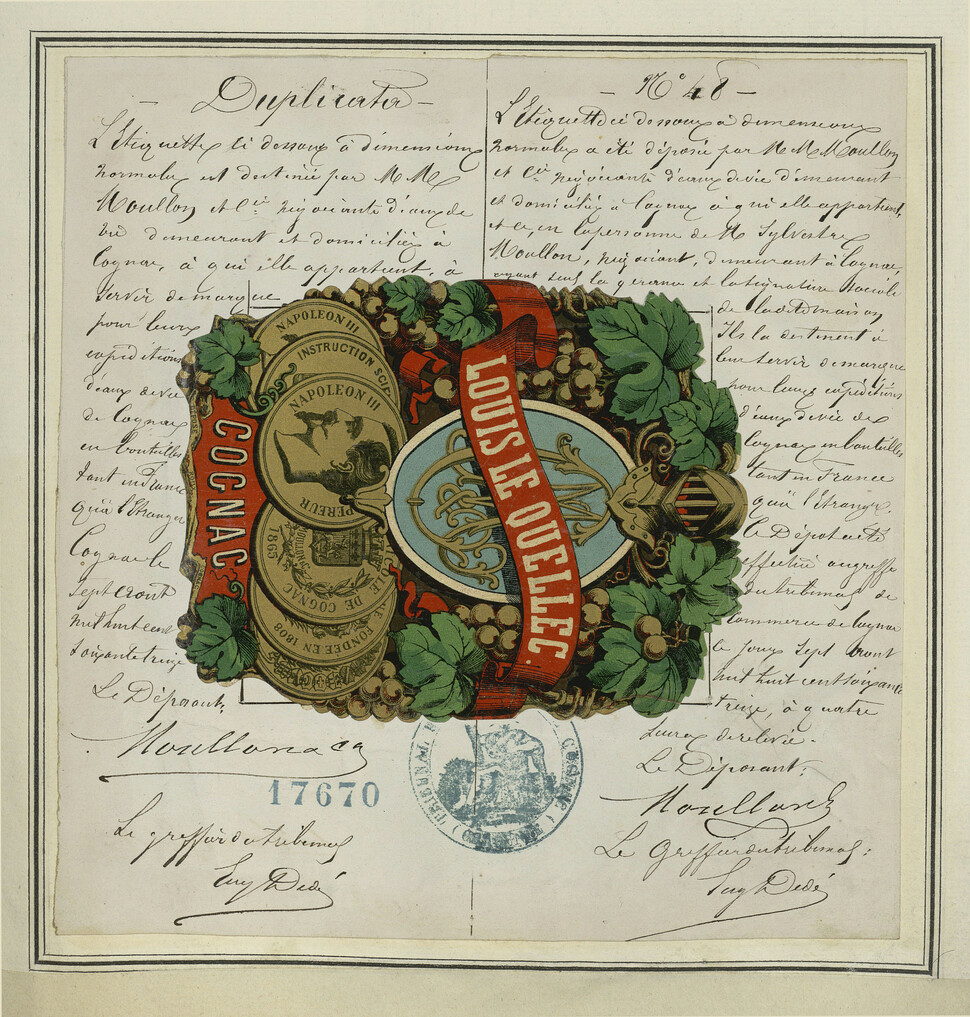 Duplicata
L'Etiquette ci dessous à dimensions
normales est destinée par M M
Moullon et Cie négociants d'eaux de
vie demeurant et domiciliés à
Cognac, à qui elle appartient, à
servir de marque
pour leurs
expéditions
d'eaux de vie
de Cognac
en bouteilles
tant en France
qu'à l'Etranger
Cognac le
sept Août
mil huit cent
soixante treize
Le Déposant,
Moullon & Cie
17670
Le greffier du tribunal
N° 48
L'Etiquette ci dessous à dimensions
normales a été déposée par M M Moullon
et Cie négociants d'eaux de vie demeurant
et domiciliés à Cognac à qui elle appartient,
et ce, en la personne de M Sylvestre
Moullon, négociant, demeurant à Cognac,
ayant seul la gérance et la signature sociale
de ladite maison
Ils la destinent à
leur servir de marque
pour leurs expéditions
d'eaux de vie de
Cognac en bouteilles
tant en France
qu'à l'Etranger.
Le Dépôt a été
effectué au greffe
du tribunal de
Commerce de Cognac
le jour Sept Août
mil huit cent soixante
treize, à quatre
heures de relevée.
Le Déposant,
Moullon & Cie
Le Greffier du tribunal,
COGNAC
NAPOLEON III
INSTRUCTION
NAPOLEON III
EMPEREUR
VILLE DE COGNAC
MOULLON
FONDÉE EN 1808
LOUIS LE QUELLEC.
TRIBUNAL COGNAC